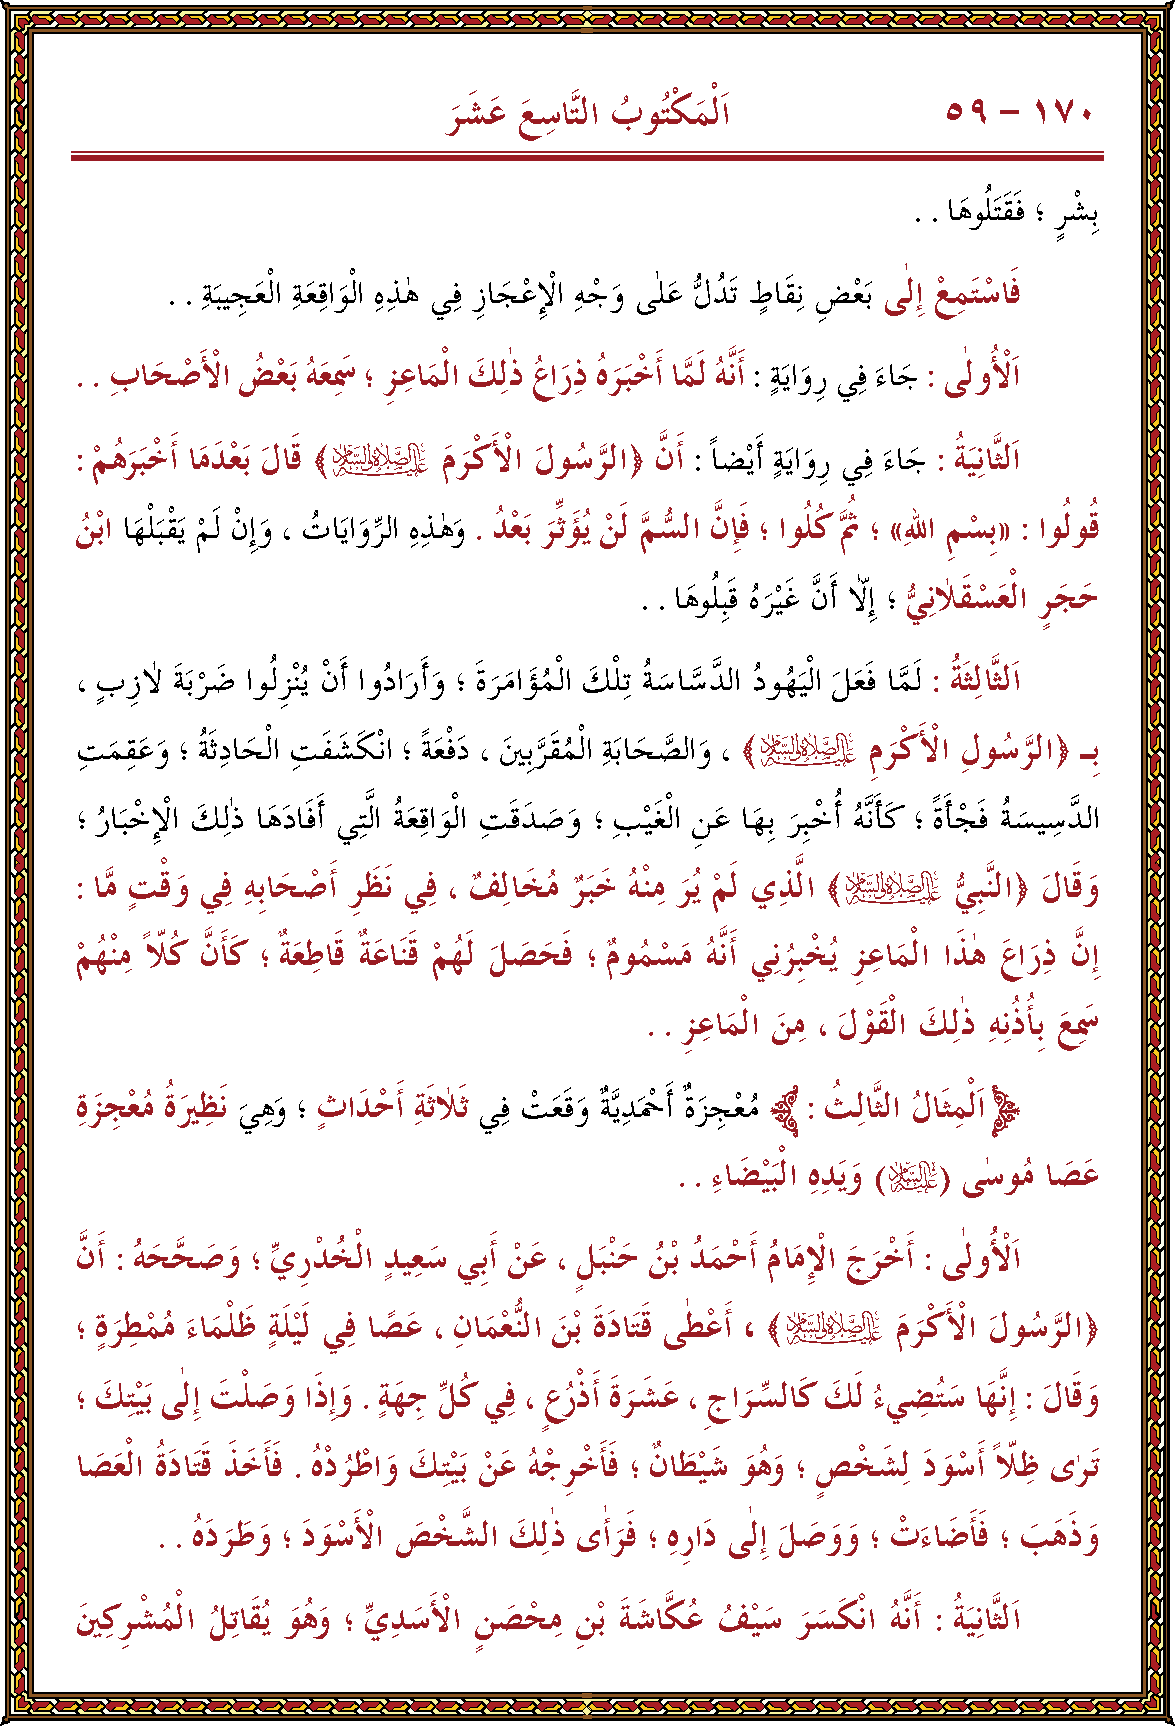 ١٧٠ – ٥٩ اَلْمَكْتُوبُ التَّاسِعَ عَشَرَ
بِشْرٍ ؛ فَقَتَلُوهَا . .
فَاسْتَمِعْ إِلٰى بَعْضِ نِقَاطٍ تَدُلُّ عَلٰى وَجْهِ الْإِعْجَازِ فِي هٰذِهِ الْوَاقِعَةِ الْعَجِيبَةِ . .
اَلْأُولٰى : جَاءَ فِي رِوَايَةٍ : أَنَّهُ لَمَّا أَخْبَرَهُ ذِرَاعُ ذٰلِكَ الْمَاعِزِ ؛ سَمِعَهُ بَعْضُ الْأَصْحَابِ . .
اَلثَّانِيَةُ : جَاءَ فِي رِوَايَةٍ أَيْضاً : أَنَّ ﴿الرَّسُولَ الْأَكْرَمَ عَلَيْهِ الصَّلَاةُ وَالسَّلَامُ﴾ قَالَ بَعْدَمَا أَخْبَرَهُمْ :
قُولُوا : «بِسْمِ اللهِ» ؛ ثُمَّ كُلُوا ؛ فَإِنَّ السُّمَّ لَنْ يُؤَثِّرَ بَعْدُ . وَهٰذِهِ الرِّوَايَاتُ ، وَإِنْ لَمْ يَقْبَلْهَا ابْنُ
حَجَرٍ الْعَسْقَلَانِيُّ ؛ إِلَّا أَنَّ غَيْرَهُ قَبِلُوهَا . .
اَلثَّالِثَةُ : لَمَّا فَعَلَ الْيَهُودُ الدَّسَّاسَةُ تِلْكَ الْمُؤَامَرَةَ ؛ وَأَرَادُوا أَنْ يُنْزِلُوا ضَرْبَةَ لَازِبٍ ،
بِـ ﴿الرَّسُولِ الْأَكْرَمِ عَلَيْهِ الصَّلَاةُ وَالسَّلَامُ﴾ ، وَالصَّحَابَةِ الْمُقَرَّبِينَ ، دَفْعَةً ؛ انْكَشَفَتِ الْحَادِثَةُ ؛ وَعَقِمَتِ
الدَّسِيسَةُ فَجْأَةً ؛ كَأَنَّهُ أُخْبِرَ بِهَا عَنِ الْغَيْبِ ؛ وَصَدَقَتِ الْوَاقِعَةُ الَّتِي أَفَادَهَا ذٰلِكَ الْإِخْبَارُ ؛
وَقَالَ ﴿النَّبِيُّ عَلَيْهِ الصَّلَاةُ وَالسَّلَامُ﴾ الَّذِي لَمْ يُرَ مِنْهُ خَبَرٌ مُخَالِفٌ ، فِي نَظَرِ أَصْحَابِهِ فِي وَقْتٍ مَّا :
إِنَّ ذِرَاعَ هٰذَا الْمَاعِزِ يُخْبِرُنِي أَنَّهُ مَسْمُومٌ ؛ فَحَصَلَ لَهُمْ قَنَاعَةٌ قَاطِعَةٌ ؛ كَأَنَّ كُلّاً مِنْهُمْ
سَمِعَ بِأُذُنِهِ ذٰلِكَ الْقَوْلَ ، مِنَ الْمَاعِزِ . .
﴿اَلْمِثَالُ الثَّالِثُ :﴾ مُعْجِزَةٌ أَحْمَدِيَّةٌ وَقَعَتْ فِي ثَلَاثَةِ أَحْدَاثٍ ؛ وَهِيَ نَظِيرَةُ مُعْجِزَةِ
عَصَا مُوسٰى (عَلَيْهِ السَّلَامُ) وَيَدِهِ الْبَيْضَاءِ . .
اَلْأُولٰى : أَخْرَجَ الْإِمَامُ أَحْمَدُ بْنُ حَنْبَلٍ ، عَنْ أَبِي سَعِيدٍ الْخُدْرِيِّ ؛ وَصَحَّحَهُ : أَنَّ
﴿الرَّسُولَ الْأَكْرَمَ عَلَيْهِ الصَّلَاةُ وَالسَّلَامُ﴾ ، أَعْطٰى قَتَادَةَ بْنَ النُّعْمَانِ ، عَصًا فِي لَيْلَةٍ ظَلْمَاءَ مُمْطِرَةٍ ؛
وَقَالَ : إِنَّهَا سَتُضِيءُ لَكَ كَالسِّرَاجِ ، عَشَرَةَ أَذْرُعٍ ، فِي كُلِّ جِهَةٍ . وَإِذَا وَصَلْتَ إِلٰى بَيْتِكَ ؛
تَرٰى ظِلّاً أَسْوَدَ لِشَخْصٍ ؛ وَهُوَ شَيْطَانٌ ؛ فَأَخْرِجْهُ عَنْ بَيْتِكَ وَاطْرُدْهُ . فَأَخَذَ قَتَادَةُ الْعَصَا
وَذَهَبَ ؛ فَأَضَاءَتْ ؛ وَوَصَلَ إِلٰى دَارِهِ ؛ فَرَأَى ذٰلِكَ الشَّخْصَ الْأَسْوَدَ ؛ وَطَرَدَهُ . .
اَلثَّانِيَةُ : أَنَّهُ انْكَسَرَ سَيْفُ عُكَّاشَةَ بْنِ مِحْصَنٍ الْأَسَدِيِّ ؛ وَهُوَ يُقَاتِلُ الْمُشْرِكِينَ